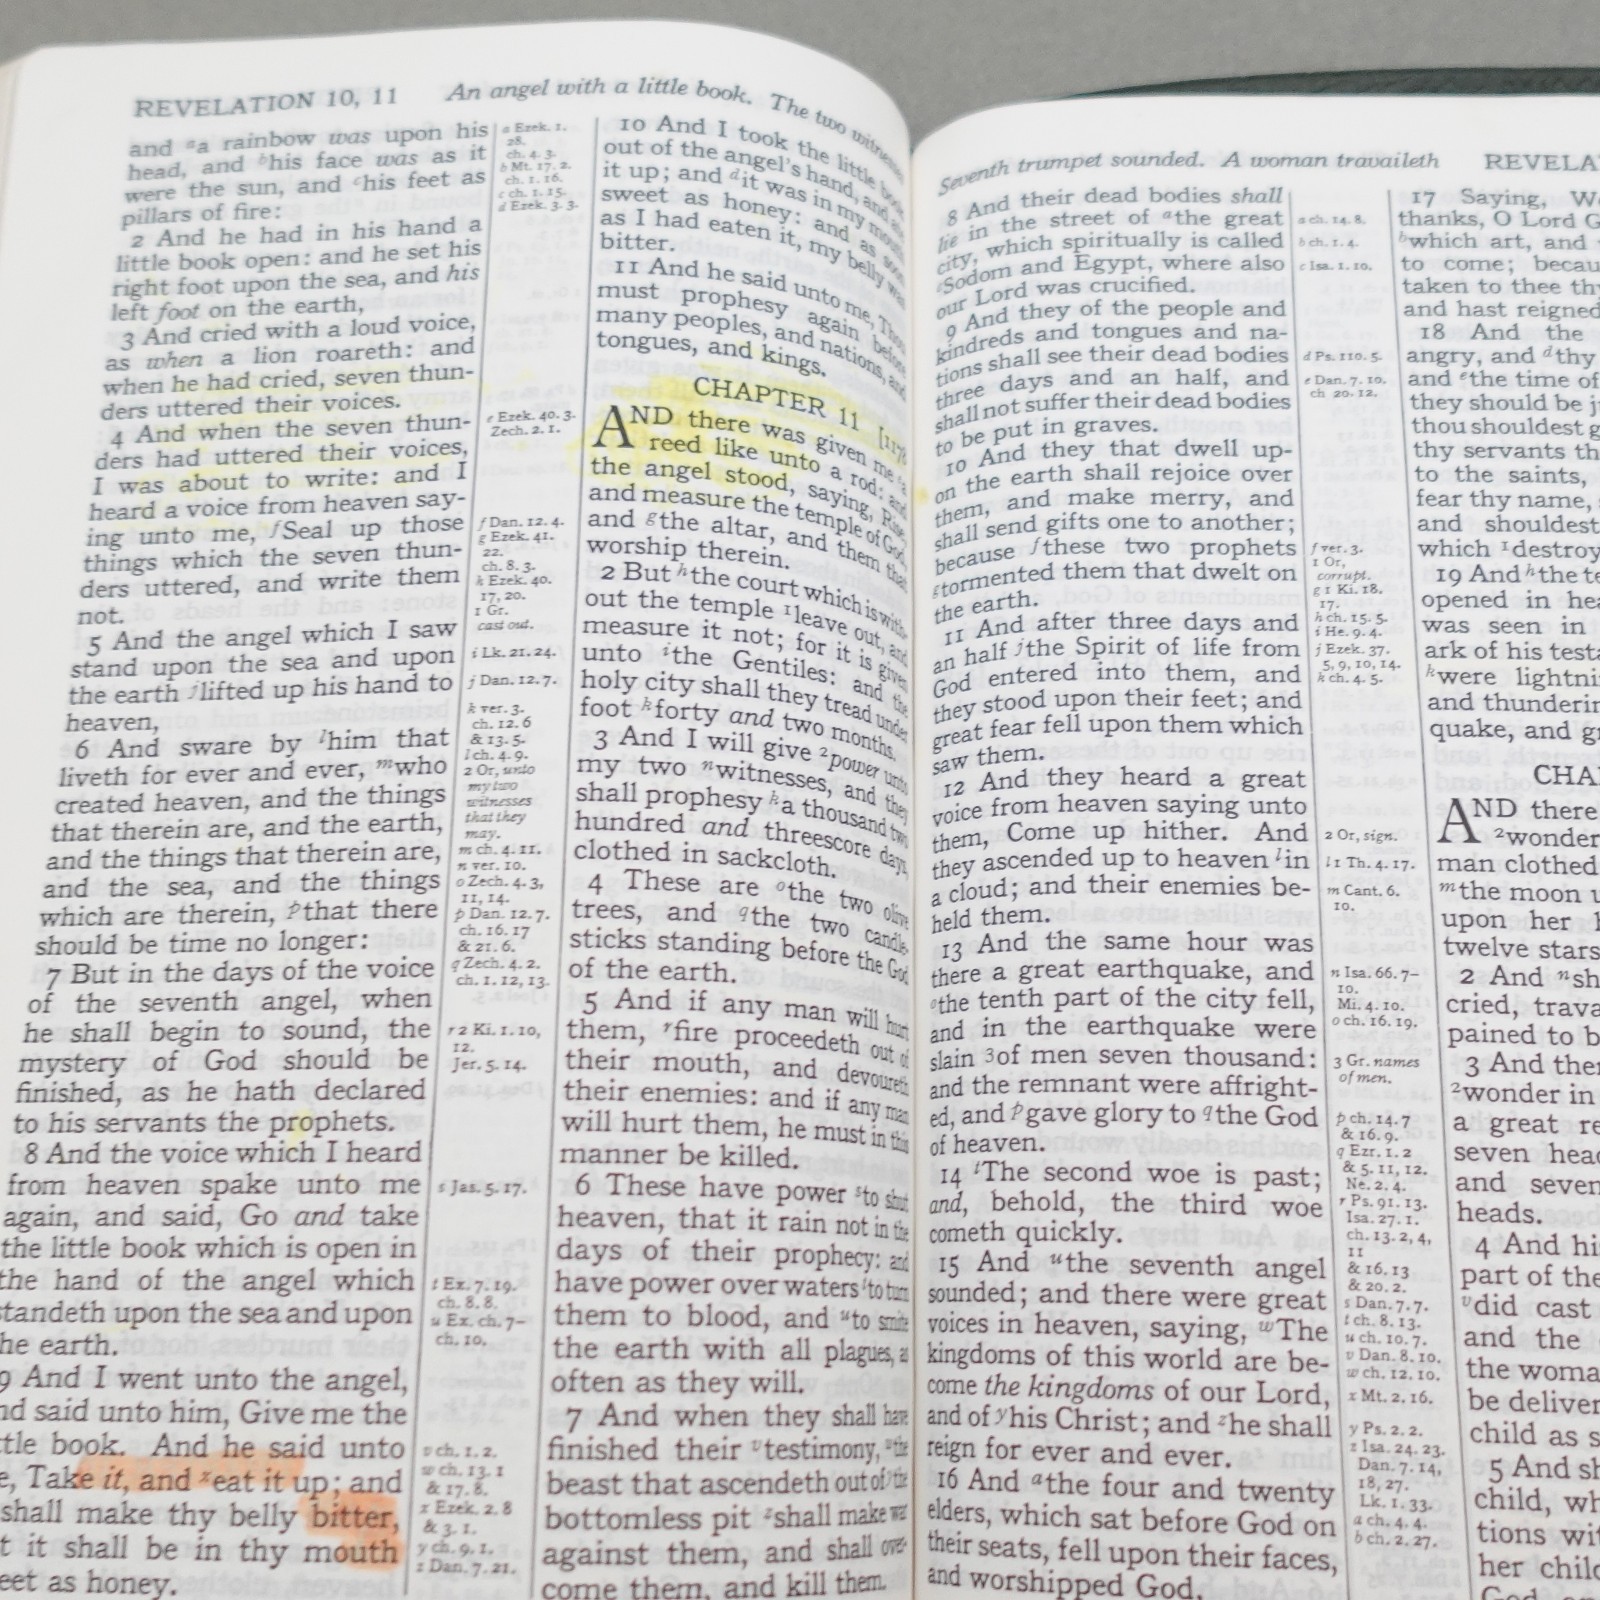 REVELATION 10, 11 An angel with a little book. The two witnesses
and ᵃa rainbow was upon his
head, and ᵇhis face was as it
were the sun, and ᶜhis feet as
pillars of fire:
2 And he had in his hand a
little book open: and he set his
right foot upon the sea, and his
left foot on the earth,
3 And cried with a loud voice,
as when a lion roareth: and
when he had cried, seven thun-
ders uttered their voices.
4 And when the seven thun-
ders had uttered their voices,
I was about to write: and I
heard a voice from heaven say-
ing unto me, ᶠSeal up those
things which the seven thun-
ders uttered, and write them
not.
5 And the angel which I saw
stand upon the sea and upon
the earth ʲlifted up his hand to
heaven,
6 And sware by ˡhim that
liveth for ever and ever, ᵐwho
created heaven, and the things
that therein are, and the earth,
and the things that therein are,
and the sea, and the things
which are therein, ᵖthat there
should be time no longer:
7 But in the days of the voice
of the seventh angel, when
he shall begin to sound, the
mystery of God should be
finished, as he hath declared
to his servants the prophets.
8 And the voice which I heard
from heaven spake unto me
again, and said, Go and take
the little book which is open in
the hand of the angel which
standeth upon the sea and upon
he earth.
9 And I went unto the angel,
nd said unto him, Give me the
tle book. And he said unto
e, Take it, and ˣeat it up; and
shall make thy belly bitter,
t it shall be in thy mouth
eet as honey.
a Ezek. 1.
28.
ch. 4. 3.
b Mt. 17. 2.
ch. 1. 16.
c ch. 1. 15.
d Ezek. 3. 3.
e Ezek. 40. 3.
Zech. 2. 1.
f Dan. 12. 4.
g Ezek. 41.
22.
ch. 8. 3.
h Ezek. 40.
17, 20.
1 Gr.
cast out.
i Lk. 21. 24.
j Dan. 12. 7.
k ver. 3.
ch. 12. 6
& 13. 5.
l ch. 4. 9.
2 Or, unto
my two
witnesses
that they
may.
m ch. 4. 11.
n ver. 10.
o Zech. 4. 3,
11, 14.
p Dan. 12. 7.
ch. 16. 17
& 21. 6.
q Zech. 4. 2.
ch. 1. 12, 13.
r 2 Ki. 1. 10,
12.
Jer. 5. 14.
s Jas. 5. 17.
t Ex. 7. 19.
ch. 8. 8.
u Ex. ch. 7–
ch. 10.
v ch. 1. 2.
w ch. 13. 1
& 17. 8.
x Ezek. 2. 8
& 3. 1.
y ch. 9. 1.
z Dan. 7. 21.
10 And I took the little book
out of the angel's hand, and ate
it up; and ᵈit was in my mouth
sweet as honey: and as soon
as I had eaten it, my belly was
bitter.
11 And he said unto me, Thou
must prophesy again before
many peoples, and nations, and
tongues, and kings.
CHAPTER 11
AND there was given me ᵉa
reed like unto a rod: and
the angel stood, saying, Rise,
and measure the temple of God,
and ᵍthe altar, and them that
worship therein.
2 But ʰthe court which is with-
out the temple ¹leave out, and
measure it not; for it is given
unto ⁱthe Gentiles: and the
holy city shall they tread under
foot ᵏforty and two months.
3 And I will give ²power unto
my two ⁿwitnesses, and they
shall prophesy ᵏa thousand two
hundred and threescore days,
clothed in sackcloth.
4 These are ᵒthe two olive
trees, and ᑫthe two candle-
sticks standing before the God
of the earth.
5 And if any man will hurt
them, ʳfire proceedeth out of
their mouth, and devoureth
their enemies: and if any man
will hurt them, he must in this
manner be killed.
6 These have power ˢto shut
heaven, that it rain not in the
days of their prophecy: and
have power over waters ᵗto turn
them to blood, and ᵘto smite
the earth with all plagues, as
often as they will.
7 And when they shall have
finished their ᵛtestimony, ʷthe
beast that ascendeth out of ʸthe
bottomless pit ᶻshall make war
against them, and shall over-
come them, and kill them.
Seventh trumpet sounded. A woman travaileth REVELA
8 And their dead bodies shall
lie in the street of ᵃthe great
city, which spiritually is called
ᶜSodom and Egypt, where also
our Lord was crucified.
9 And they of the people and
kindreds and tongues and na-
tions shall see their dead bodies
three days and an half, and
shall not suffer their dead bodies
to be put in graves.
10 And they that dwell up-
on the earth shall rejoice over
them, and make merry, and
shall send gifts one to another;
because ᶠthese two prophets
ᵍtormented them that dwelt on
the earth.
11 And after three days and
an half ʲthe Spirit of life from
God entered into them, and
they stood upon their feet; and
great fear fell upon them which
saw them.
12 And they heard a great
voice from heaven saying unto
them, Come up hither. And
they ascended up to heaven ˡin
a cloud; and their enemies be-
held them.
13 And the same hour was
there a great earthquake, and
ᵒthe tenth part of the city fell,
and in the earthquake were
slain ³of men seven thousand:
and the remnant were affright-
ed, and ᵖgave glory to ᑫthe God
of heaven.
14 ᵗThe second woe is past;
and, behold, the third woe
cometh quickly.
15 And ᵘthe seventh angel
sounded; and there were great
voices in heaven, saying, ʷThe
kingdoms of this world are be-
come the kingdoms of our Lord,
and of ʸhis Christ; and ᶻhe shall
reign for ever and ever.
16 And ᵃthe four and twenty
elders, which sat before God on
their seats, fell upon their faces,
and worshipped God,
a ch. 14. 8.
b ch. 1. 4.
c Isa. 1. 10.
d Ps. 110. 5.
e Dan. 7. 10.
ch 20. 12.
f ver. 3.
1 Or,
corrupt.
g 1 Ki. 18.
17.
h ch. 15. 5.
i He. 9. 4.
j Ezek. 37.
5, 9, 10, 14.
k ch. 4. 5.
2 Or, sign.
l 1 Th. 4. 17.
m Cant. 6.
10.
n Isa. 66. 7–
10.
Mi. 4. 10.
o ch. 16. 19.
3 Gr. names
of men.
p ch. 14. 7
& 16. 9.
q Ezr. 1. 2
& 5. 11, 12.
Ne. 2. 4.
r Ps. 91. 13.
Isa. 27. 1.
ch. 13. 2, 4,
11
& 16. 13
& 20. 2.
s Dan. 7. 7.
t ch. 8. 13.
u ch. 10. 7.
v Dan. 8. 10.
w ch. 12. 10.
x Mt. 2. 16.
y Ps. 2. 2.
z Isa. 24. 23.
Dan. 7. 14,
18, 27.
Lk. 1. 33.
a ch. 4. 4.
b ch. 2. 27.
17 Saying, W
thanks, O Lord G
ᵇwhich art, and
to come; becau
taken to thee th
and hast reigned
18 And the
angry, and ᵈthy
and ᵉthe time of
they should be j
thou shouldest g
thy servants th
to the saints,
fear thy name,
and shouldest
which ¹destroy
19 And ʰthe te
opened in hea
was seen in
ark of his testa
ᵏwere lightni
and thunderin
quake, and gr
CHA
AND there
²wonder
man clothed
ᵐthe moon u
upon her h
twelve stars
2 And ⁿsh
cried, trava
pained to b
3 And ther
²wonder in
a great re
seven head
and seven
heads.
4 And hi
part of the
ᵛdid cast
and the
the woma
be deliver
child as s
5 And sh
child, wh
tions wit
her child